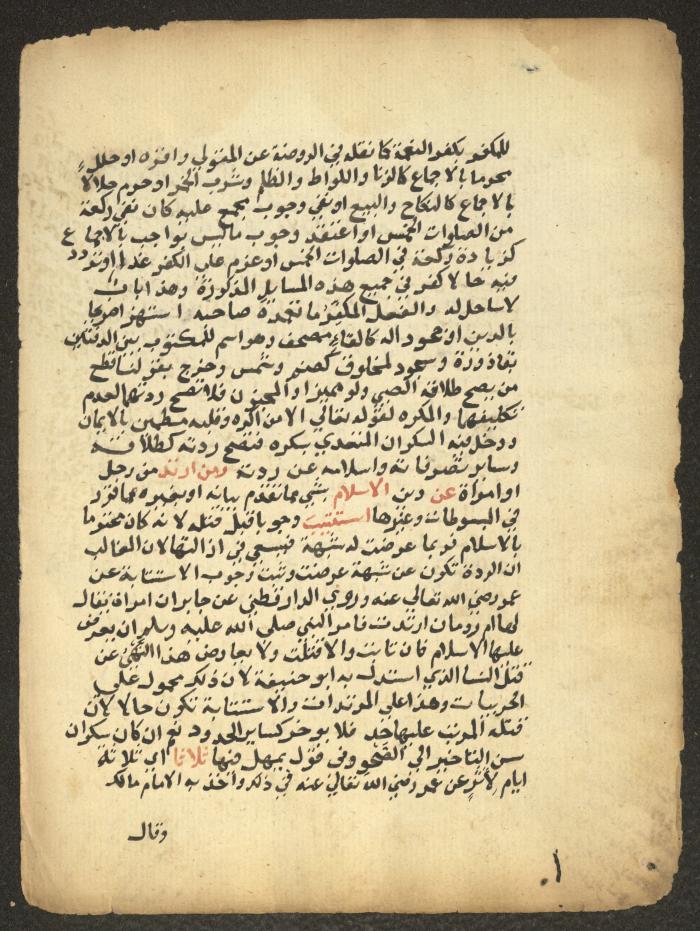 للكفر بكفر النعمة كما نقله في الروضة عن المتولي واقره او حلل
محرما بالاجماع كالزنا واللواط والظلم وشرب الخمر او حرم حلالا
بالاجماع كالنكاح والبيع او نفى وجوب مجمع عليه كان نفى ركعة
من الصلوات الخمس او اعتقد وجوب ما ليس بواجب بالاجماع
كزيادة ركعة في الصلوات الخمس او عزم على الكفر غدا او تردد
فيه حالا كفر في جميع هذه المسايل المذكورة وهذا باب
لا ساحل له والفعل المكفر ما تعمده صاحبه استهزا صريحا
بالدين او جحود اله كالقاء مصحف وهو اسم للمكتوب بين الدفتين
بقاذورة وسجود لمخلوق كصنم وشمس وخرج بقولنا قطع
من يصح طلاقه الصبي ولو مميزا والمجنون فلا تصح ردتهما لعدم
تكليفهما والمكره لقوله تعالى الا من اكره وقلبه مطمين بالايمان
ودخل فيه السكران المتعدي بسكره فتصح ردته كطلاقه
وساير تصرفاته واسلامه عن ردته ومن ارتد من رجل
او امراة عن دين الاسلام بشي مما تقدم بيانه او بغيره مما قرر
في المبسوطات وغيرها استتيب وجوبا قبل قتله لانه كان محترما
بالاسلام فربما عرضت له شبهة فيسعى في ازالتها لان الغالب
ان الردة تكون عن شبهة عرضت وثبت وجوب الاستتابة عن
عمر رضي الله تعالى عنه وروى الدارقطني عن جابر ان امراة يقال
لها ام رومان ارتدت فامر النبي صلى الله عليه وسلم ان يعرض
عليها الاسلام فان تابت والا قتلت ولا يعارض هذا النهي عن
قتل النسا الذي استدل به ابو حنيفة لان ذلك محمول على
الحربيات وهذا على المرتدات والاستتابة تكون حالا لان
قتله المرتب عليها حد فلا يوخر كساير الحدود نعم ان كان سكران
سن التاخير الى الصحو وفي قول يمهل فيها ثلاثا اي ثلاثة
ايام لاثر عن عمر رضي الله تعالى عنه في ذلك واخذ به الامام مالك
وقال